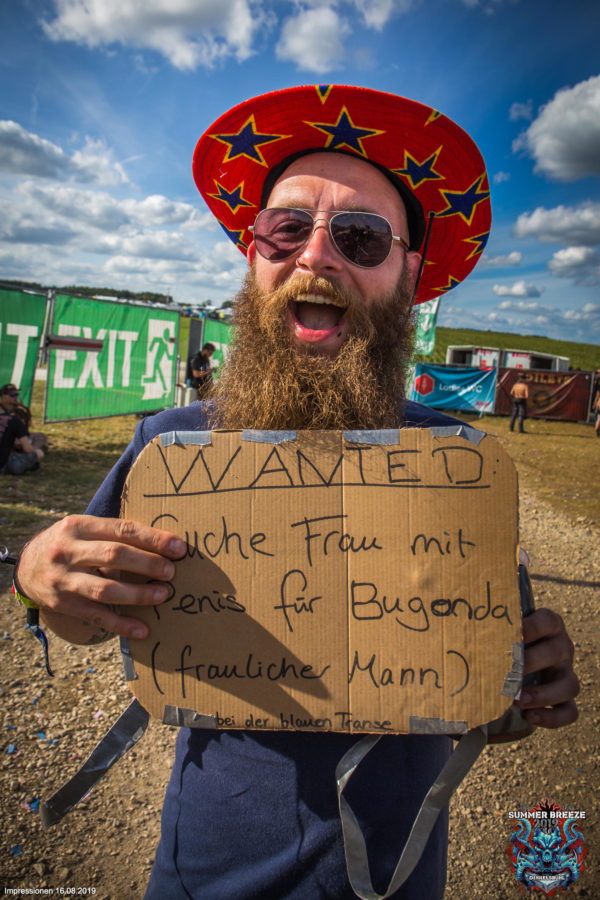 EXIT
WANTED:
Suche Frau mit
Penis für Bugonda
(fraulicher Mann)
bei der blauen Transe
SUMMER BREEZE
2019
DINKELSBÜHL
Impressionen 16.08.2019